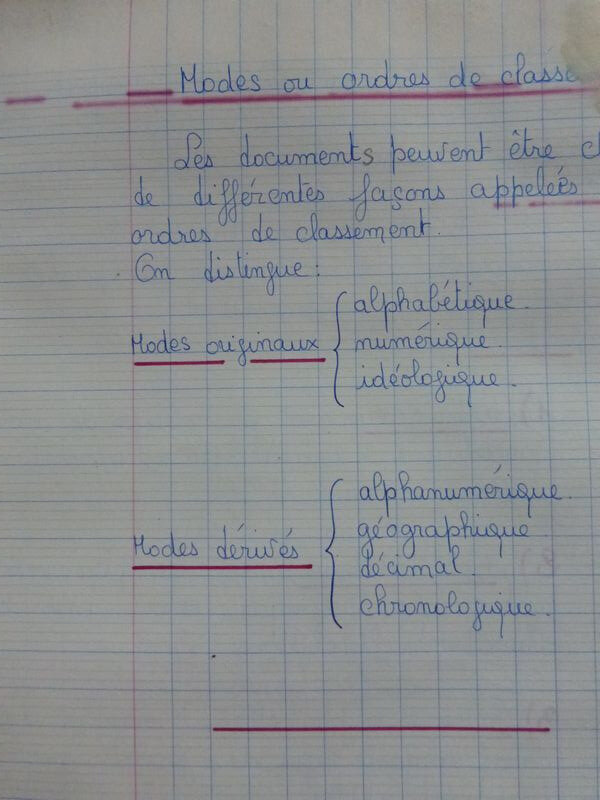 Modes ou ordres de classe
Les documents peuvent être
de différentes façons appeleés
ordres de classement.
On distingue :
alphabétique.
Modes originaux numérique.
idéologique.
alphanumérique.
géographique
Modes dérivés
décimal.
chronologique.